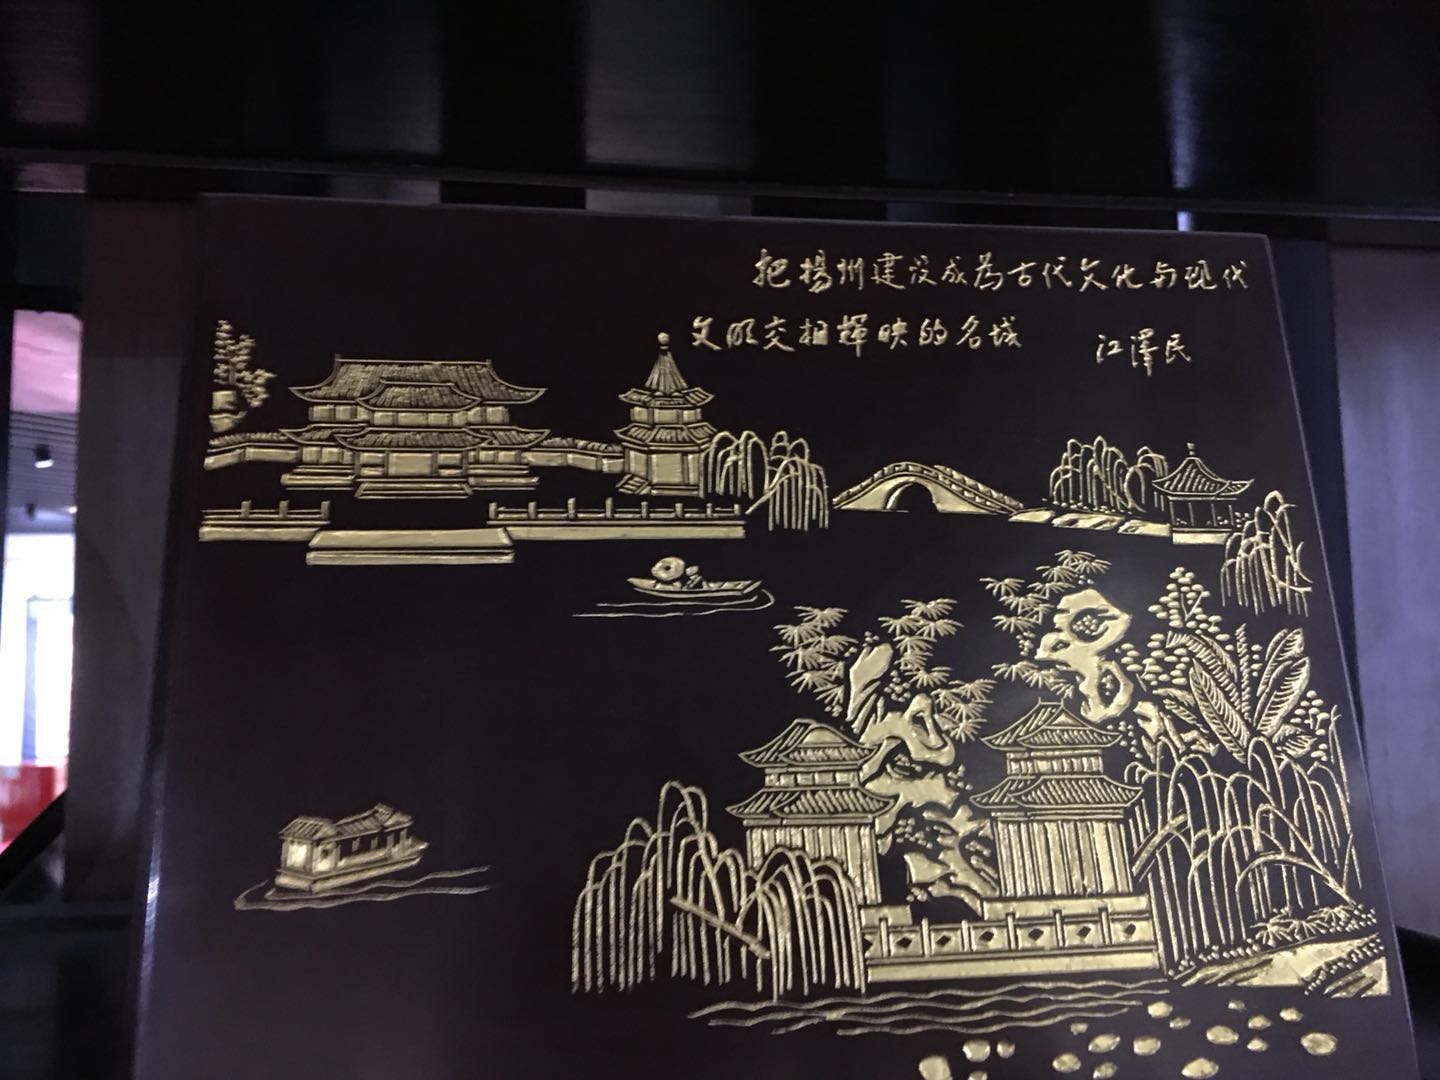 把揚州建设成为古代文化与现代
文明交相輝映的名城 江澤民